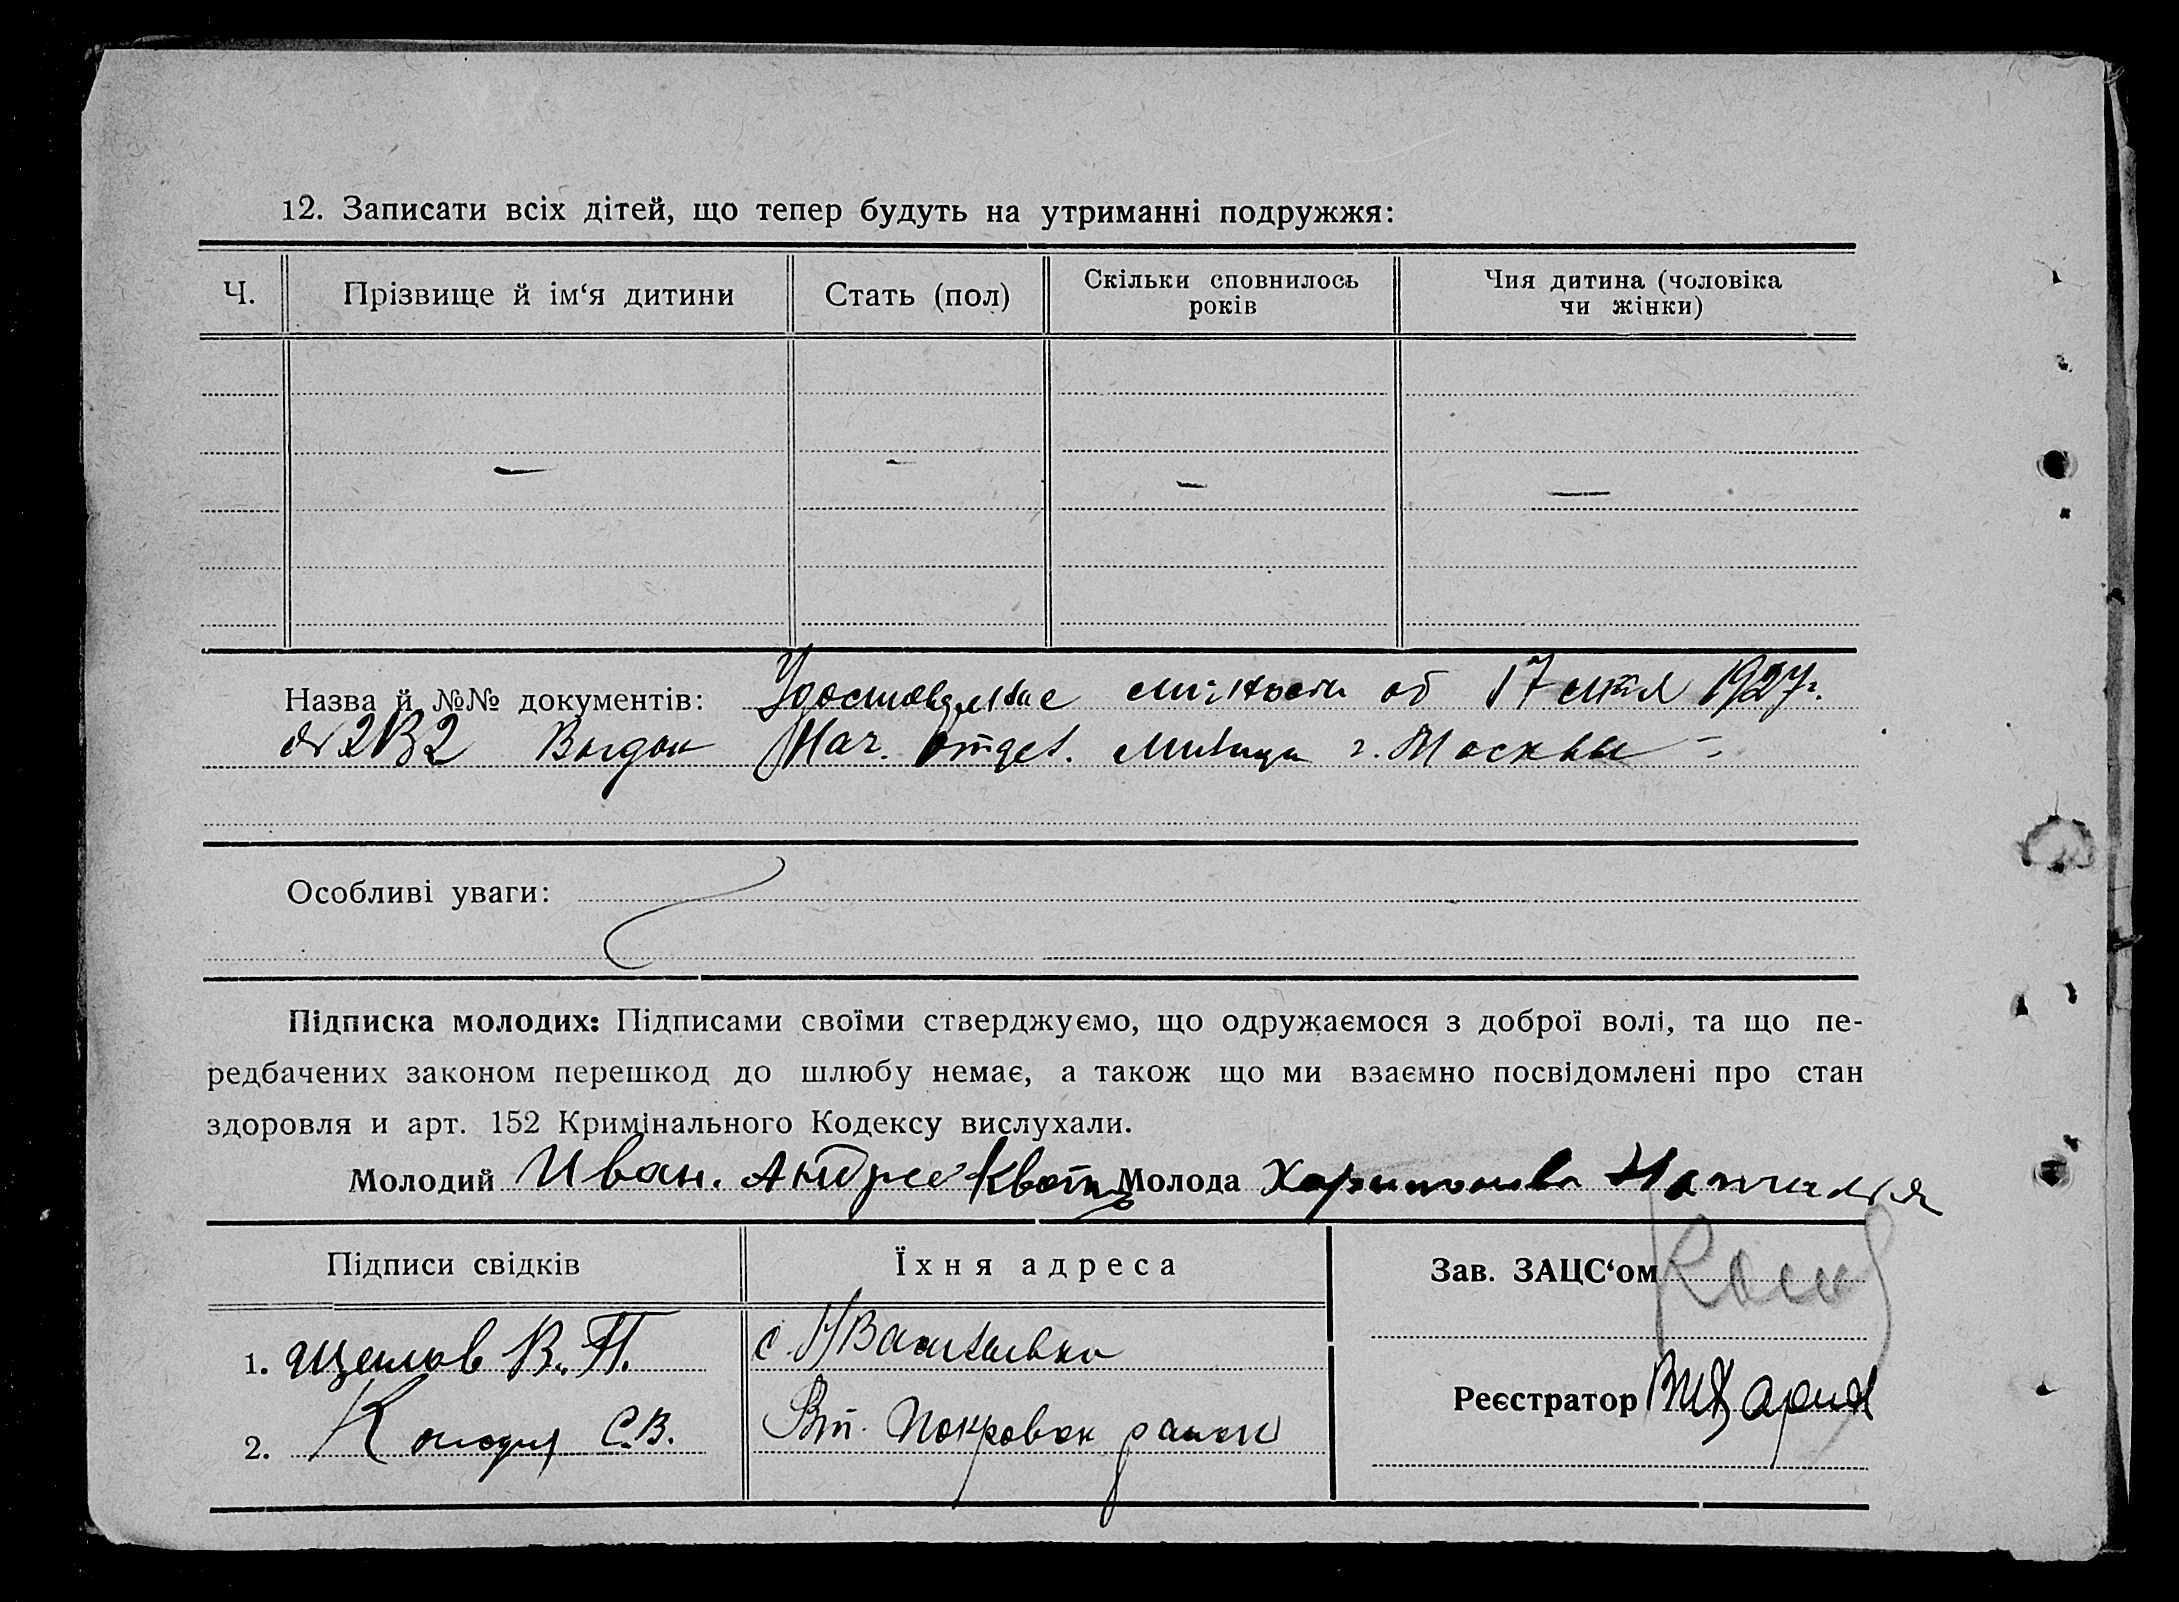 12. Записати всіх дітей, що тепер будуть на утриманні подружжя:
Ч.
Прізвище й ім‘я дитини
Стать (пол)
Скільки сповнилось
років
Чия дитина (чоловіка
чи жінки)
— — — —
Назва й №№ документів: личности об 17 1927 г.
Нач. отдел. Милиции г. Москвы
Особливі уваги:
Підписка молодих: Підписами своїми стверджуємо, що одружаємося з доброї волі, та що пе-
редбачених законом перешкод до шлюбу немає, а також що ми взаємно посвідомлені про стан
здоровля и арт. 152 Кримінального Кодексу вислухали.
Молодий Иван. Молода Харитонова Наталия
Підписи свідків
Їхня адреса
Зав. ЗАЦС‘ом
1. В. П. с.
Реєстратор
2. С.В. Покровск